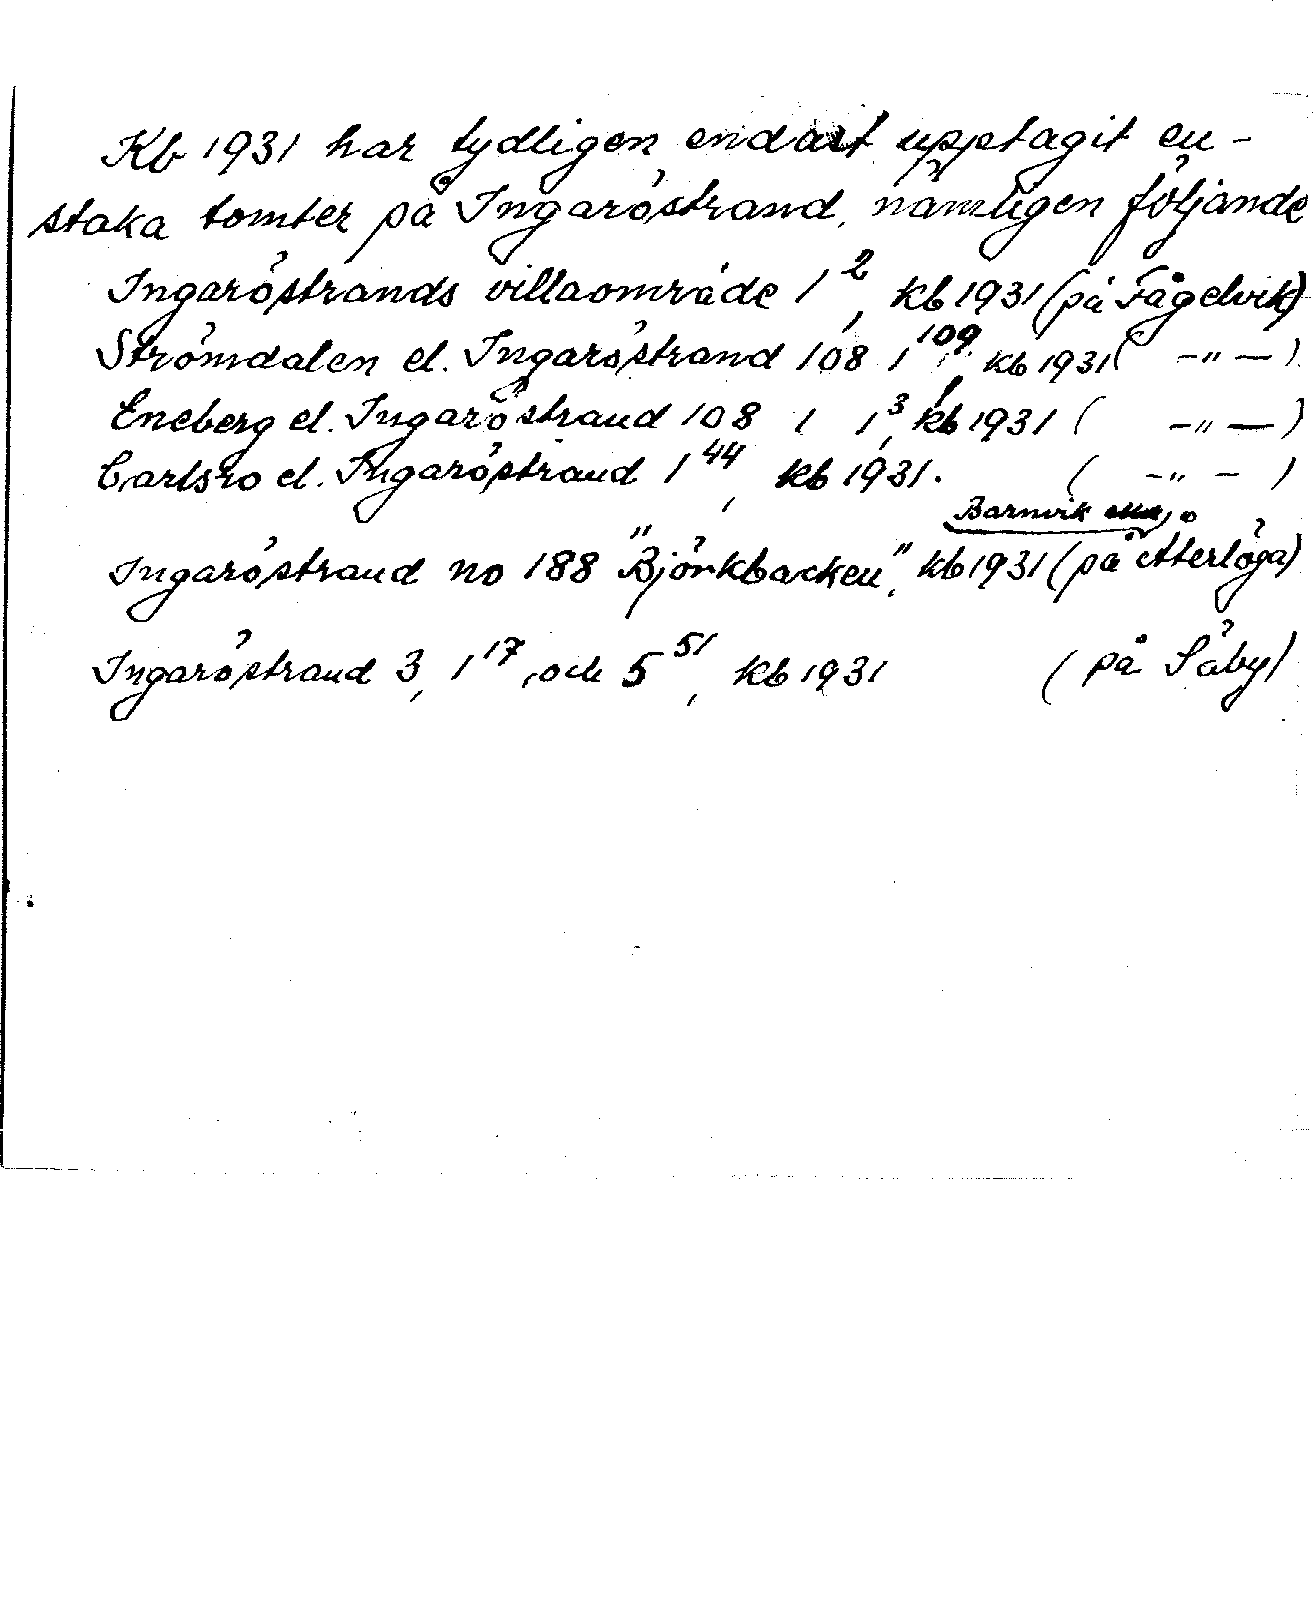 Kb 1931 har tydligen endast upptagit en-
staka tomter på Ingaröstrand, nämligen följande
Ingaröstrands villaområde 1², kb 1931 (på Fågelvik)
Strömdalen el. Ingaröstrand 108 1¹⁰⁹, kb 1931 ( —"— )
Eneberg el. Ingaröstrand 108 1 1³, kb 1931 ( —"— )
Carlsro el. Ingaröstrand 1⁴⁴, kb 1931. ( —"— )
Barnvik
Ingaröstrand no 188 "Björkbacken", kb 1931 (på Etterlöga)
Ingaröstrand 3, 1¹⁷, och 5⁵¹, kb 1931 (på Säby)